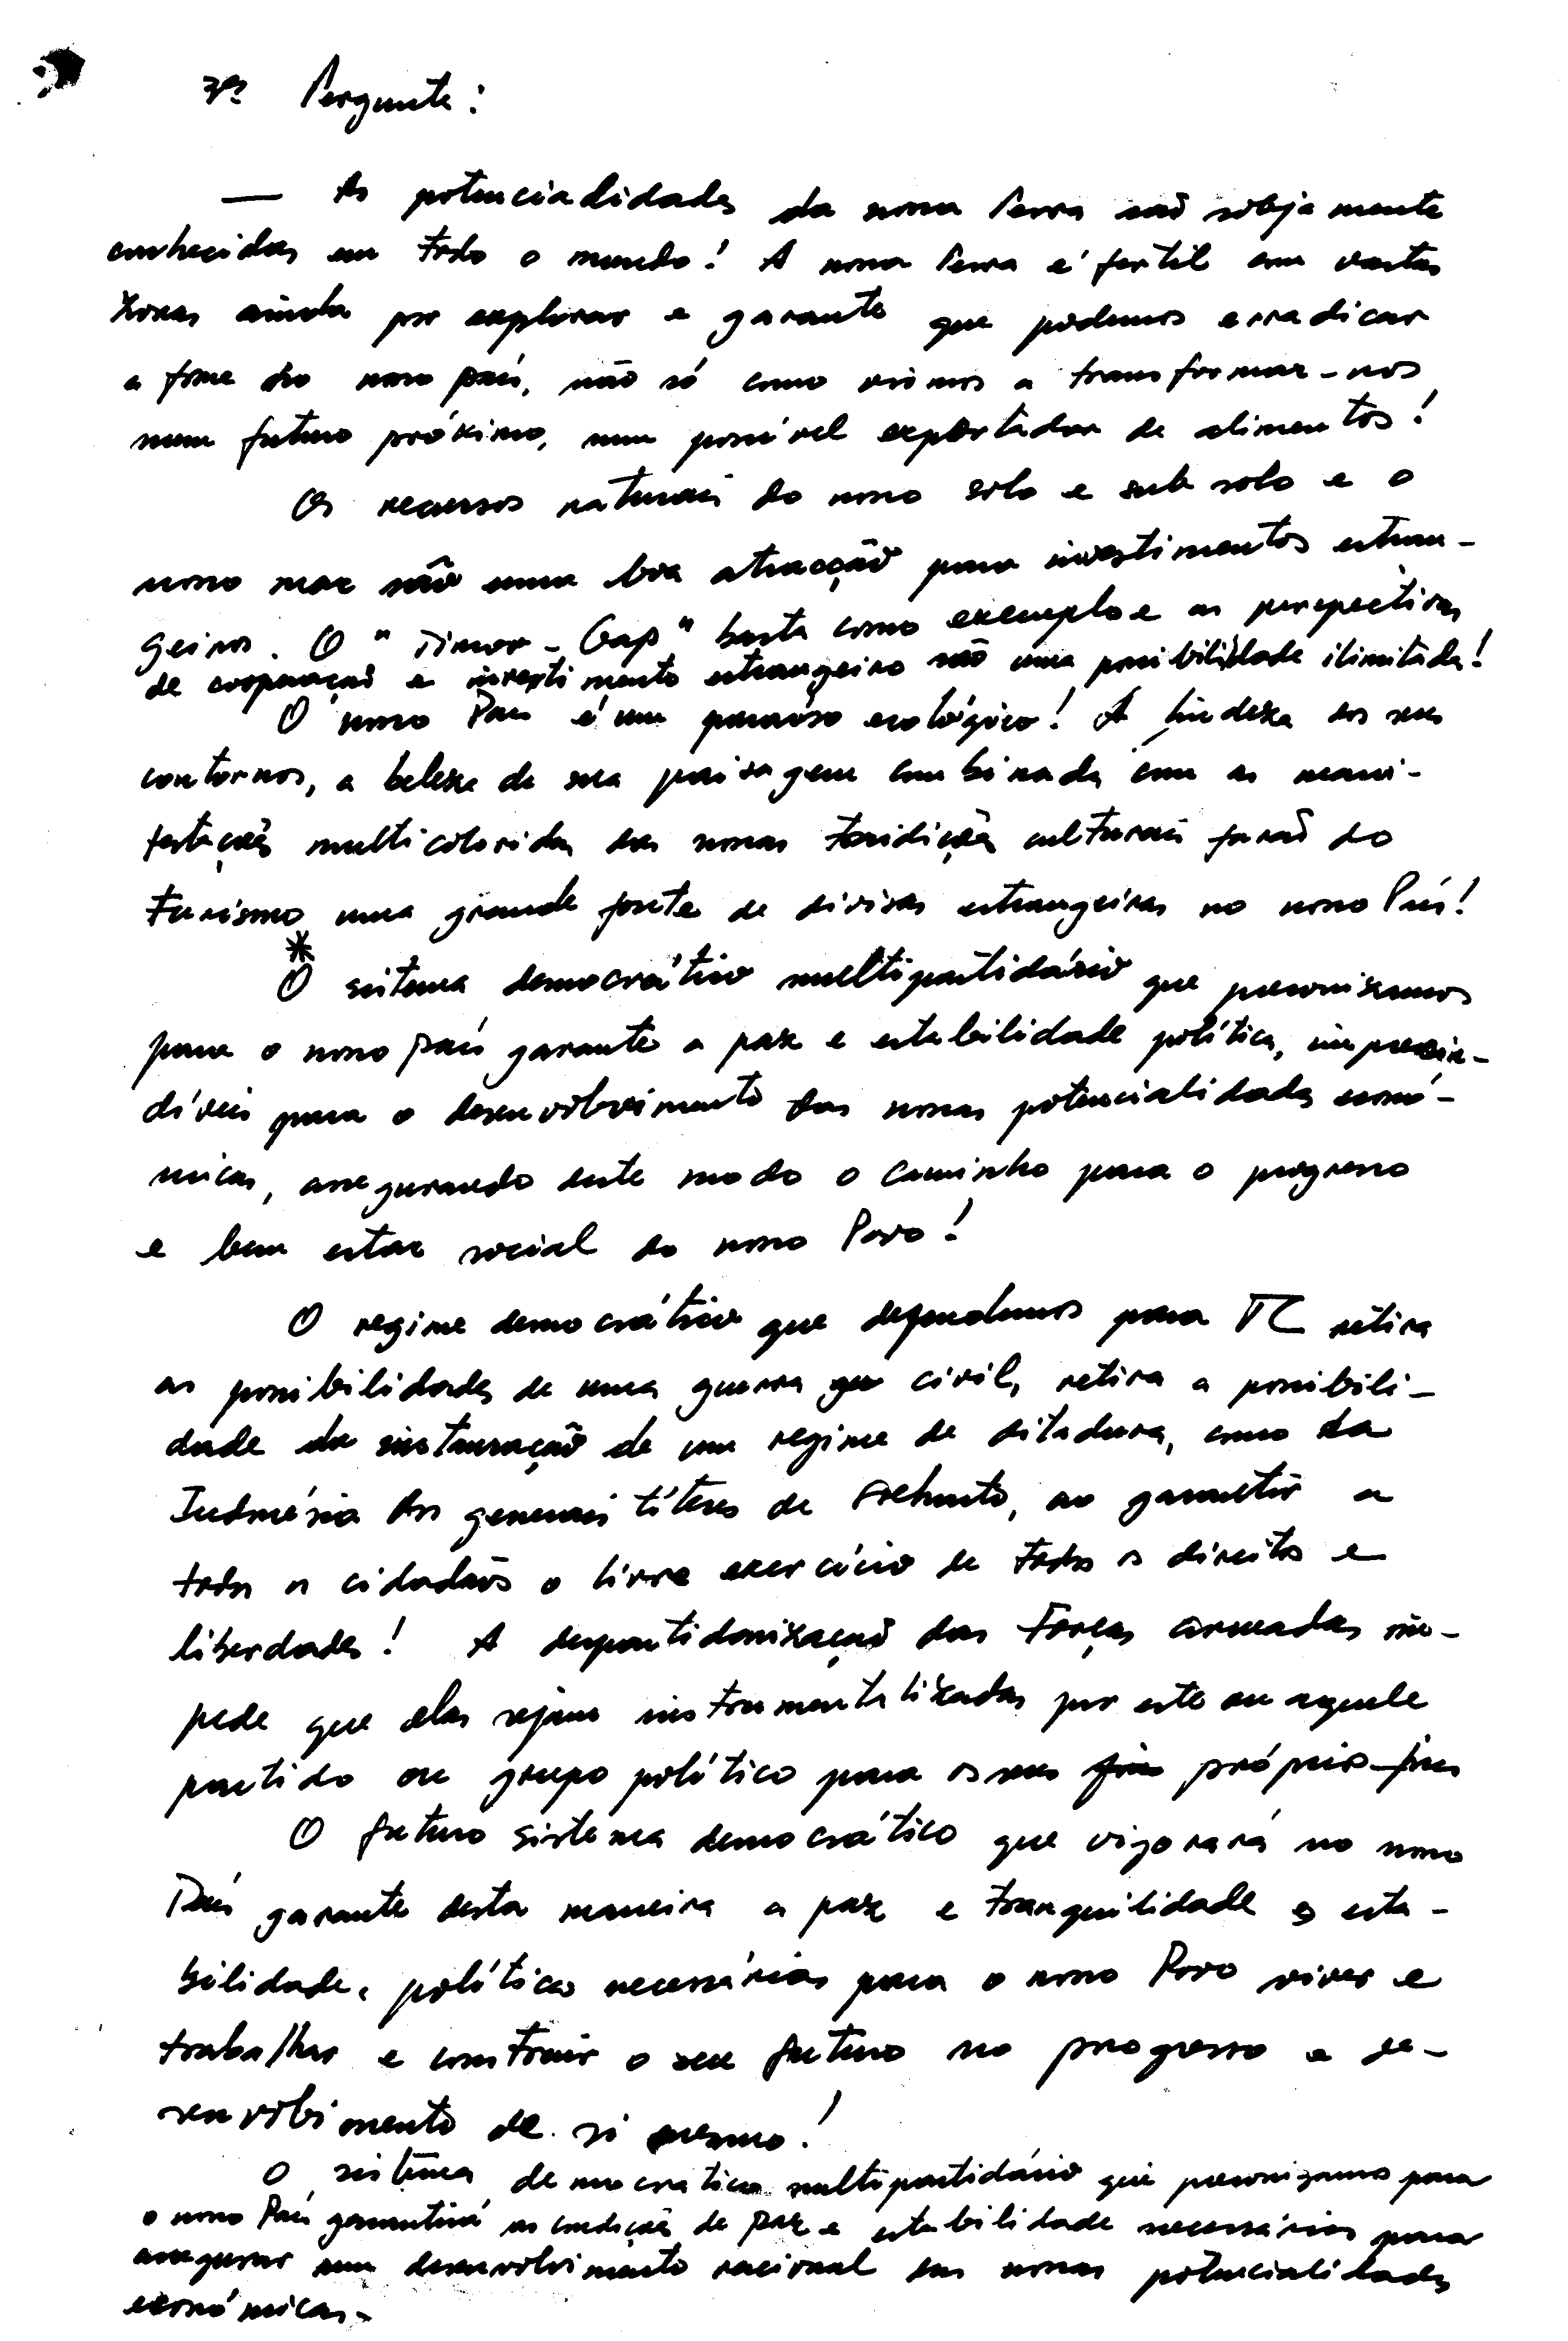 3ª Pergunta:
— As potencialidades da nossa Terra são sobejamente
conhecidas em todo o mundo! A nossa Terra é fertil com vastas
zonas ainda por explorar e garante que podemos erradicar
a fome do nosso país, não só como virmos a transformar-nos
num futuro próximo, num possível exportador de alimentos!
Os recursos naturais do nosso solo e sub solo e o
nosso mar são uma boa atracção para investimentos estran-
geiros. O "Timor-Gap" basta como exemplo e as perspectivas
de cooperação e investimento estrangeiro são uma possibilidade ilimitada!
O nosso País é um paraíso ecológico! A lindeza dos seus
contornos, a beleza de sua paisagem combinada com as mani-
festações multicoloridas das nossas tradições culturais farão do
turismo uma grande fonte de divisas estrangeiras no nosso País!
*
O sistema democrático multipartidário que preconizamos
para o nosso país garante a paz e estabilidade política, imprescin-
díveis para o desenvolvimento das nossas potencialidades econó-
micas, assegurando deste modo o caminho para o progresso
e bem estar social do nosso Povo!
O regime democrático que defendemos para TL retira
as possibilidades de uma guerra civil, retira a possibili-
dade da instauração de um regime de ditadura, como da
Indonésia dos generais títeres de Suharto, ao garantir a
todos os cidadãos o livre exercício de todos os direitos e
liberdades! A despartidarização das Forças armadas im-
pede que elas sejam instrumentalizadas por este ou aquele
partido ou grupo político para os seus próprios fins
O futuro sistema democrático que vigorará no nosso
País garante desta maneira a paz e tranquilidade e esta-
bilidade, política necessárias para o nosso Povo viver e
trabalhar e construir o seu futuro no progresso e de-
senvolvimento de si mesmo!
O sistema democrático multipartidário que preconizamos para
o nosso País garantirá as condições de paz e estabilidade necessárias para
assegurar um desenvolvimento racional das nossas potencialidades
económicas.-